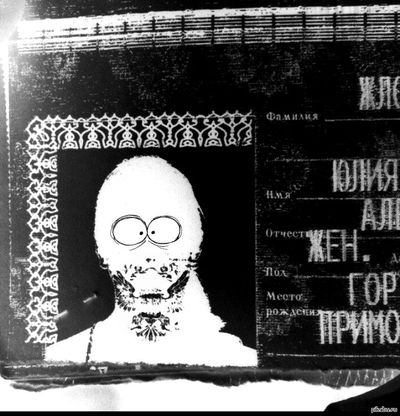 ЖЛО
Фамилия
ЮЛИЯ
Имя
АЛЕ
Отчест
ЖЕН.
Пол
Место
рождения
ГОР
ПРИМО